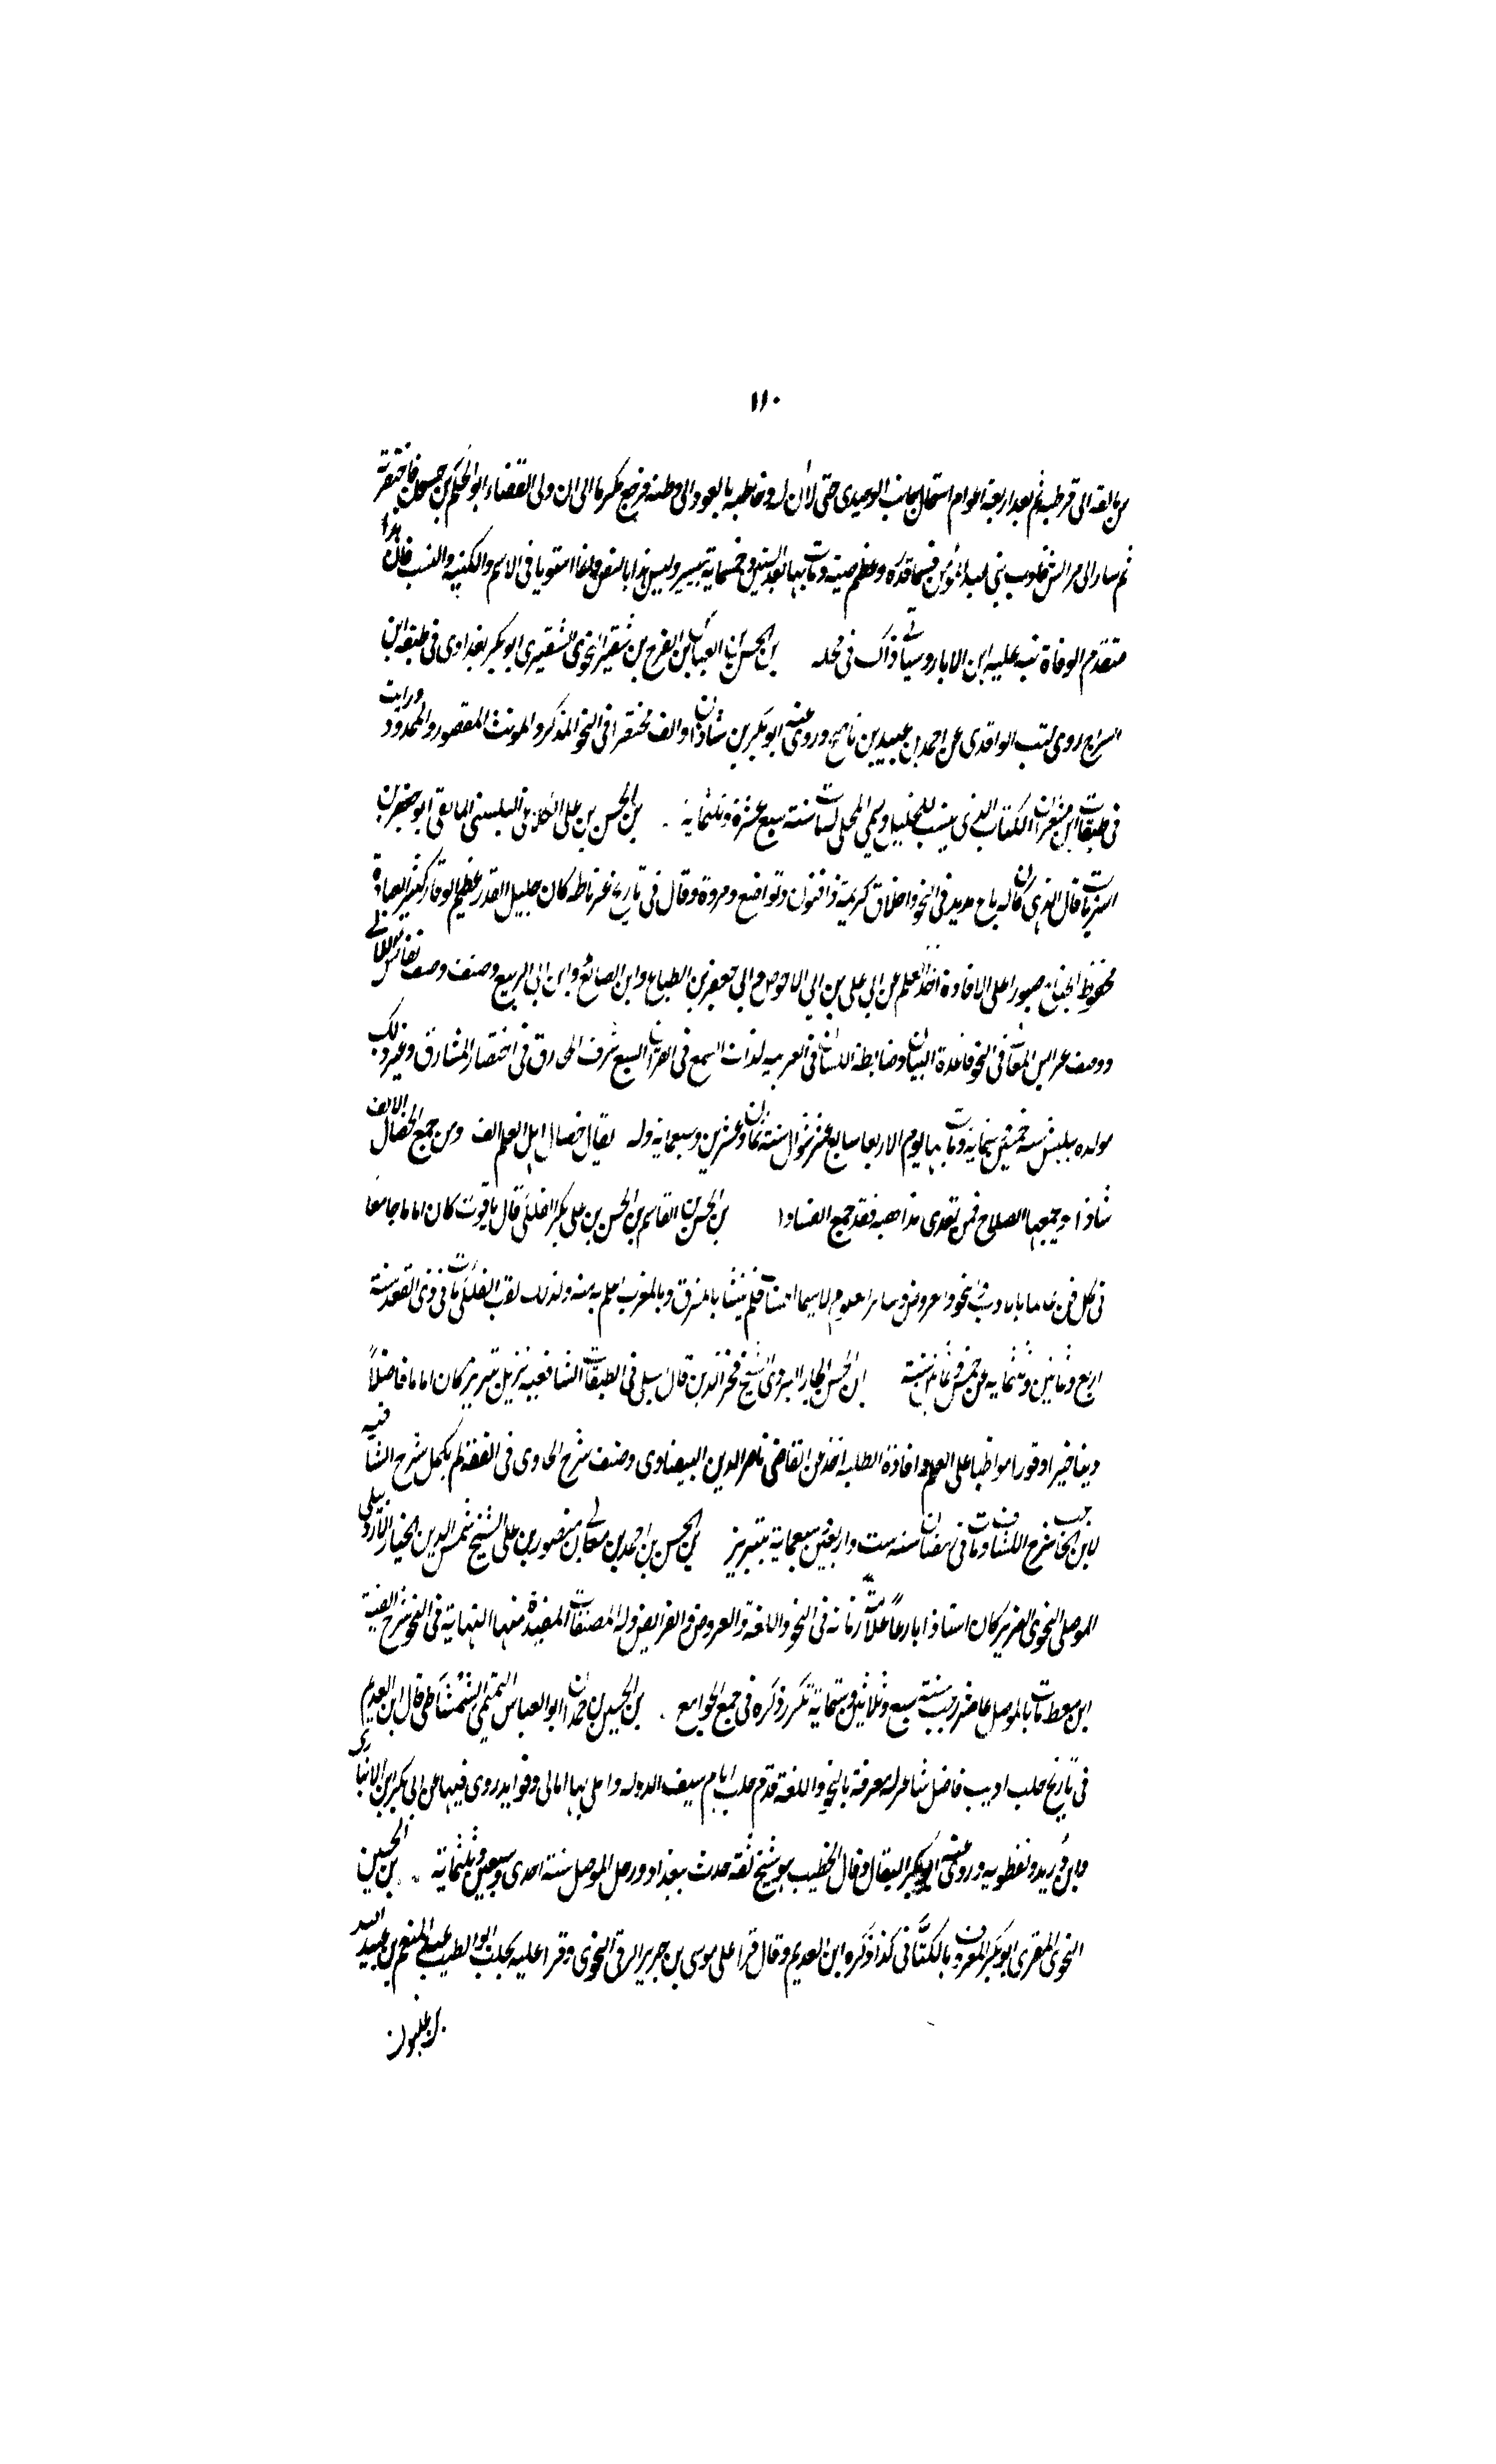 ١١٠
من مالقة الى قرطبة ثم بعد اربعة اعوام استمال جانب الوحيدى حتى لان له وخاطبه بالعود الى وطنه فرجع مكرما الى ان ولى القضاء ابو الحكم بن حسون فاختصر به
ثم سار الى مراكش فادب بنى عبد المؤمن فسما قدره وعظم صيته ومات بها بعد الستين وخمسماية بيسير وليس هذا بالنقرى وان اتفقا فى الاسم والكنية والنسب فان هذا
متقدم الوفاة نبه عليه ابن الابار وسياتى ذاك فى محله بن الحسن بن العباس بن الفرج بن شقير النحوى الشقيرى ابو بكر بغدادى فى طبقة ابن
السراج روى كتب الواقدى عن احمد بن عبيد بن ناصح وروى عنه ابو بكر بن شاذان والف مختصرا فى النحو المذكر والمونث المقصور والممدود ورايت
فى طبقات ابن مسعر ان الكتاب الذى ينسب للخليل ويسمى المحلى له مات سنة سبع عشرة وثلثماية بن الحسن بن على الكلاعى البلشى المالقى ابو جعفر بن
الزيات قال الذهبى كان له باع مديد فى النحو واخلاق كريمة ذا فنون وتواضع ومروة وقال فى تاريخ غرناطه كان جليل القدر عظيم الوقار كثير العبادة
مخفوض الجناح صبورا على الافادة اخذ العلم عن ابى على بن ابى الاحوص وابى جعفر بن الطباع وابن الصائغ وابن ابى الربيع وصنف وصف نفائس اللالى
ووصف عرايس المعالى فى النحو قاعدة البيان وضابطة اللسان فى العربيه لذات السمع فى القرآن السبع شرف المهارق فى اختصار المشارق وغير ذلك
مولده ببلش سنة خمسين وستماية ومات بها يوم الاربعا سابع عشر شوال سنة ثمان وعشرين وسبعماية وله يقال خصال اهل العلم الف ومن جمع الخصال الالف
سادا ويجمعها الصلاح فمن تعدى مذاهبه فقد جمع الفسادا بن الحسن بن القاسم بن الحسن بن على بكر الفلكى قال ياقوت كان اماما جامعا
فى كل فن عالما بالادب والنحو والعروض وساير العلوم لاسيما الحساب فلم ينشا بالمشرق وبالمغرب اعلم به منه ولذلك لقب الفلكى مات فى ذى القعدة سنة
اربع وثمانين وثلثماية عن خمس وثمانين سنة ابن الحسن الجاربردى الشيخ فخر الدين قال السبكى فى الطبقات الشافعيه نزيل تبريز كان اماما فاضلاً
دينا خيرا وقورا مواظبا على العلم وافادة الطلبه اخذ عن القاضى ناصر الدين البيضاوى وصنف شرح الحاوى فى الفقه لم يكمل شرح الشافيه
لابن الحاجب شرح الكشاف ومات فى رمضان سنه ست واربعين وسبعماية بتبريز بن الحسن بن احمد بن معالى بن منصور بن على الشيخ شمس الدين الخباز الاربلى
الموصلى النحوى الضرير كان استاذا بارعاً علامة زمانه فى النحو واللغة والعروض والفرايض وله المصنفات المفيدة منها النهاية فى النحو شرح الفية
ابن معط مات بالموصل عاشر رجب سنة سبع وثلاثين وستماية تكرر ذكره فى جمع الجوامع بن الحسين بن حمدان ابو العباس التميمى الشمشاطى قال ابن العديم
فى تاريخ حلب اديب فاضل شاعر له معرفة بالنحو واللغة قدم حلب ايام سيف الدوله واملى بها امالى وفوايد روى فيها عن ابى بكر بن الانبارى
وابن دريد ونفطويه وروى عنه ابو بكر البقال وقال الخطيب هو شيخ ثقة حدث ببغداد ورحل الموصل سنة احدى وسبعين وثلثماية بن الحسين
النحوى المقرى ابو بكر المعروف بالكتانى كذا ذكره ابن العديم وقال قرا على موسى بن جرير الرقى النحوى وقرا عليه بحلب ابو الطيب عبد المنعم بن عبيد الله
بن غلبون